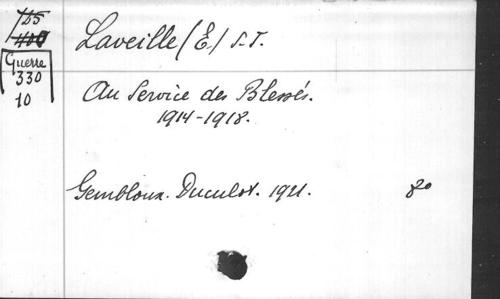 155
400
Guerre
330
10
Laveille (E.) S.-J.
Au Service des Blessés.
1914-1918.
Gembloux. Duculot. 1921. 8o